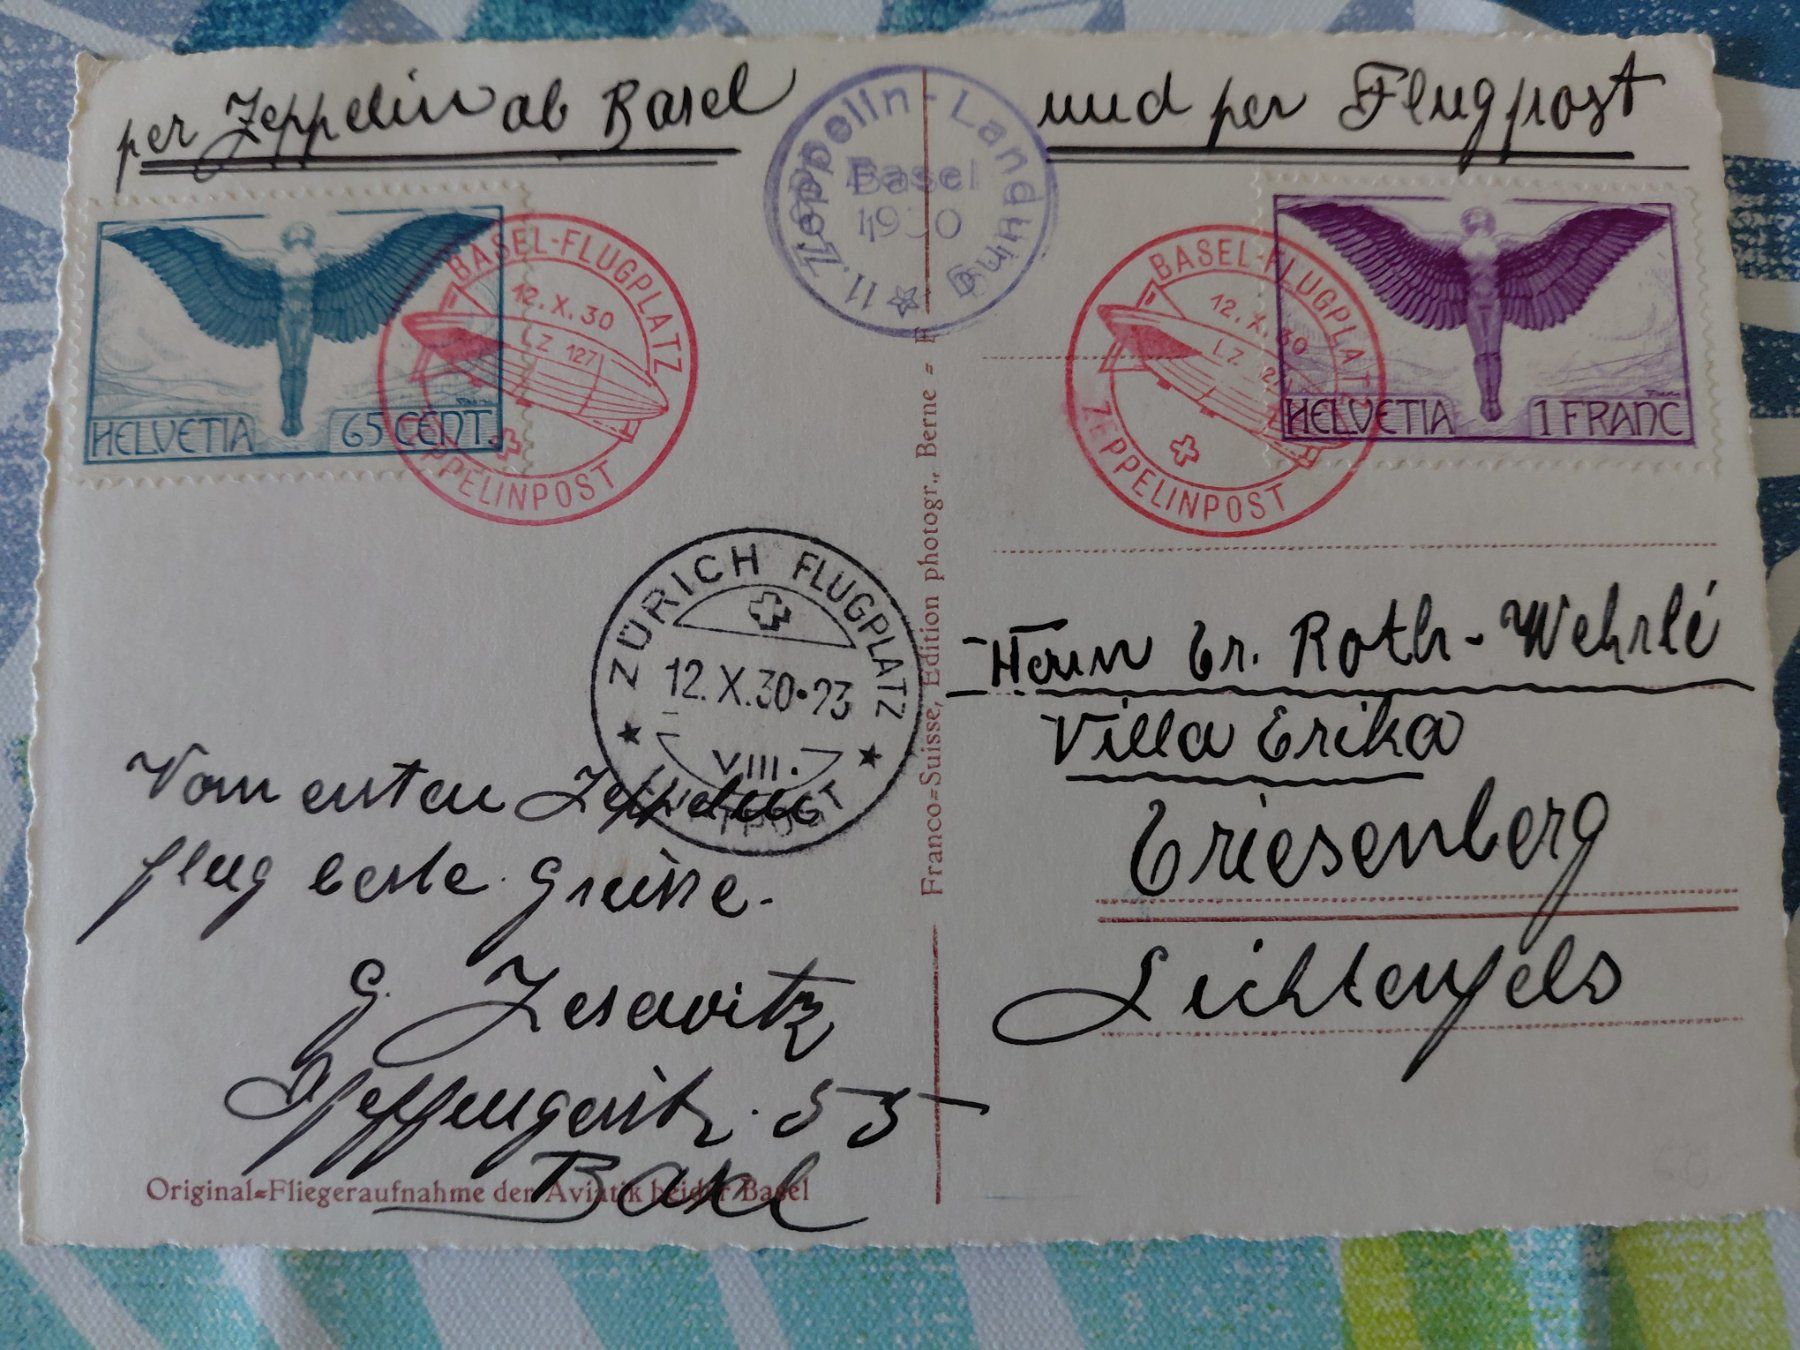 per Zeppelin ab Basel
und per Flugpost
II. Zeppelin-Landung
Basel
1930
HELVETIA 65 CENT.
BASEL-FLUGPLATZ
12.X.30
LZ 127
ZEPPELINPOST
BASEL-FLUGPLATZ
12.X.30
LZ 127
ZEPPELINPOST
HELVETIA 1 FRANC
ZÜRICH FLUGPLATZ
12.X.30·23
VIII.
LUFTPOST
Vom ersten Zeppelin
flug beste Grüsse.
G. Zesavitz
55
Basel
Original=Fliegeraufnahme der Aviatik beider Basel
Franco=Suisse, Edition photogr., Berne =
Herrn Er. Roth-Wehrlé
Villa Erika
Triesenberg
Lichtenfels